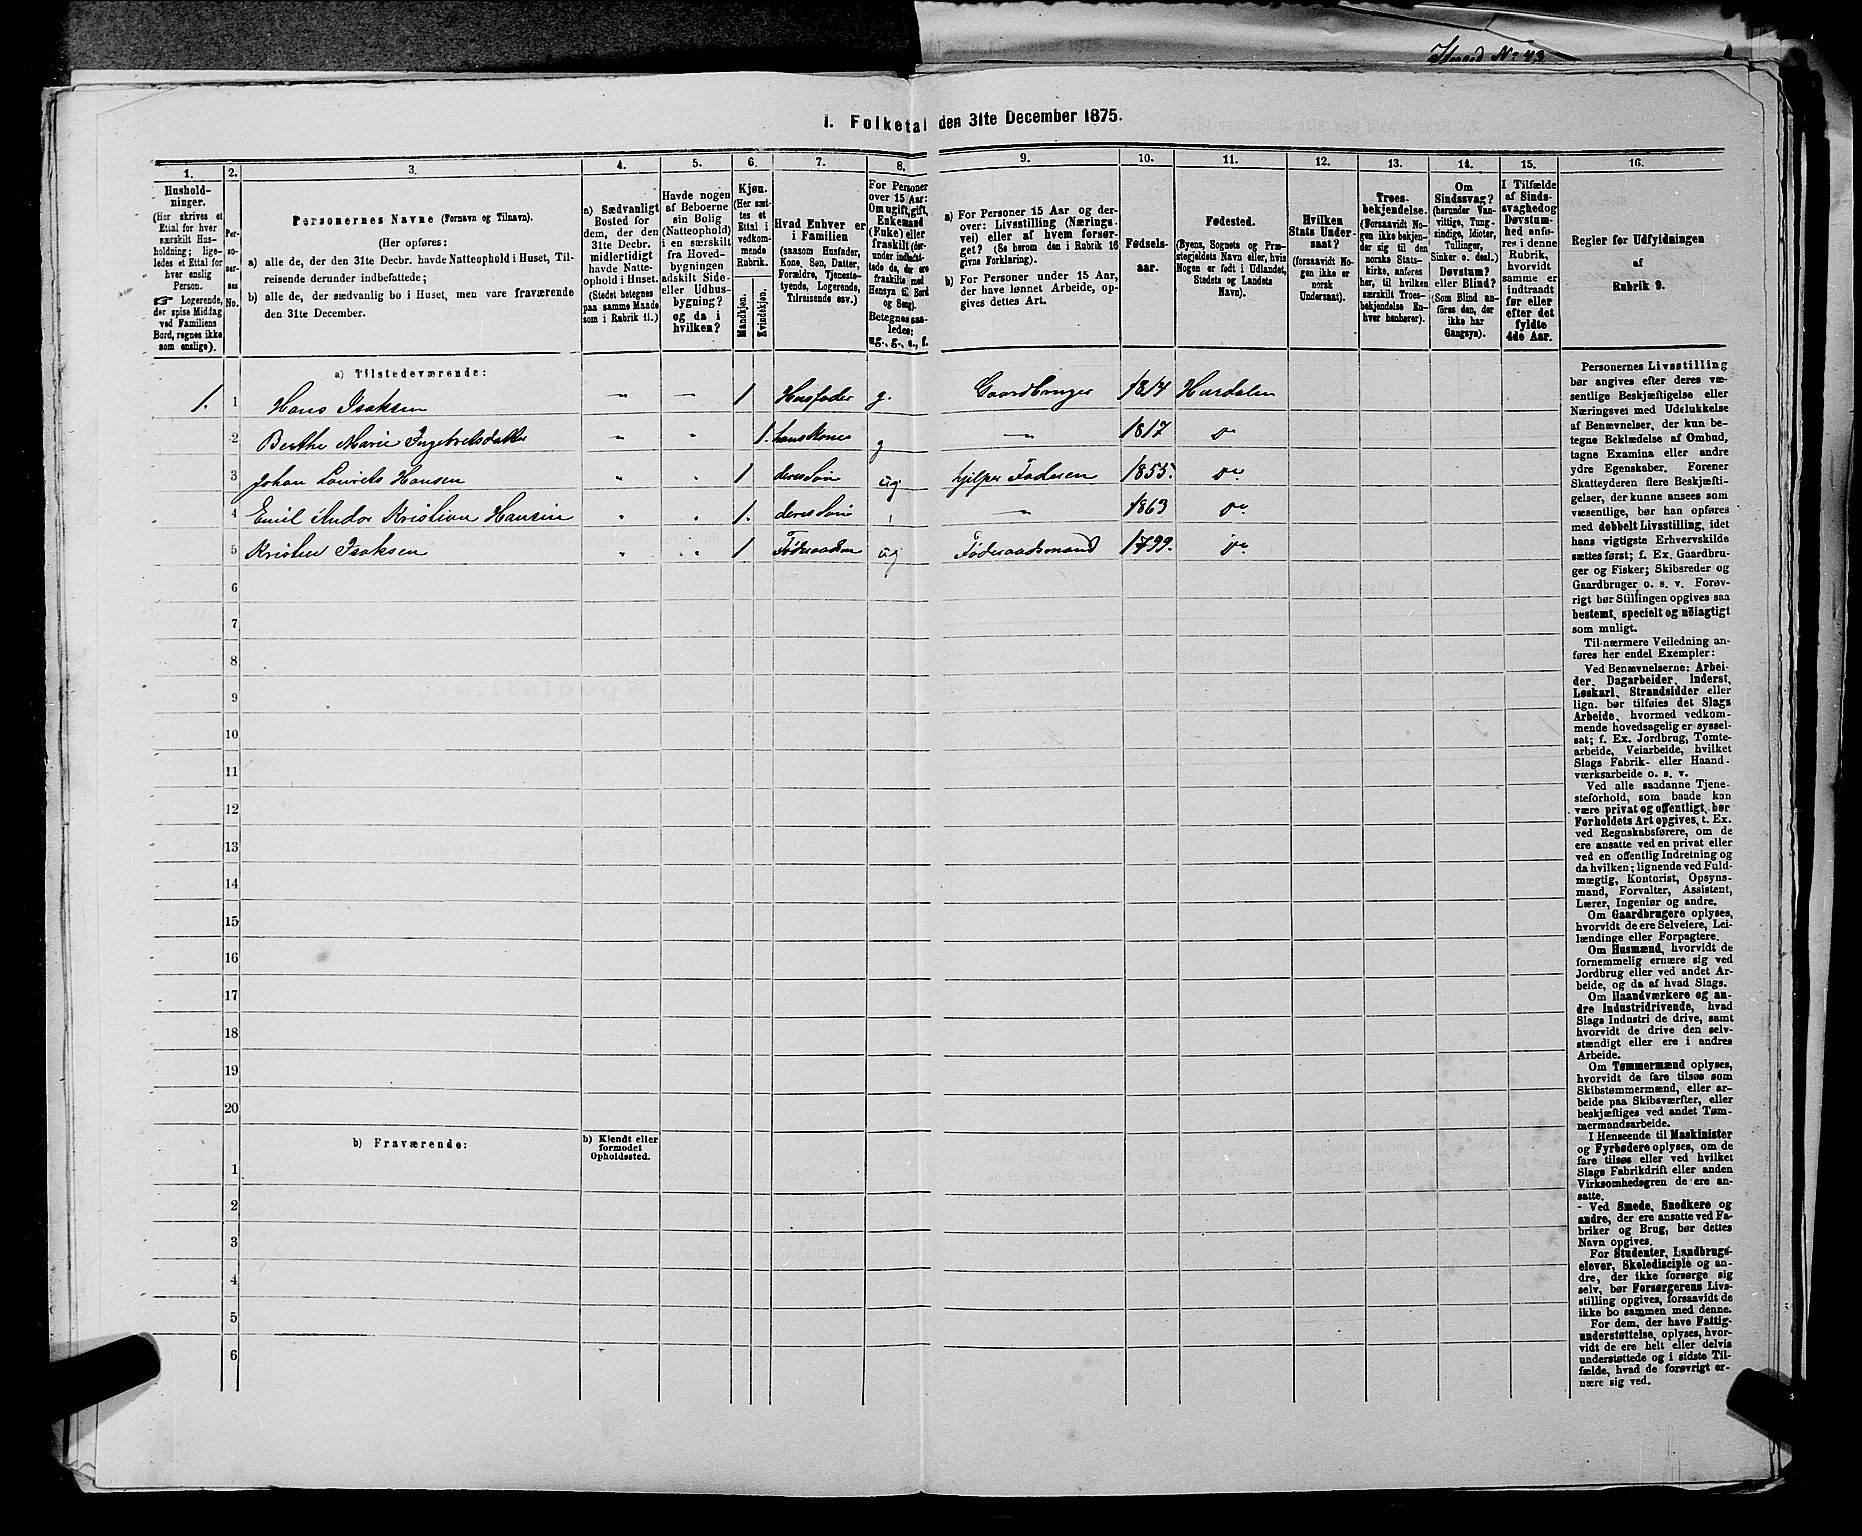 I. Folketal den 31te December 1875.
1.
Husholdninger.
(Her skrives et
Ettal for hver
særskilt Husholdning;
ligeledes et Ettal for
hver enslig
Person.
Logerende,
der spise Middag
ved Familiens
Bord, regnes ikke
som enslige).
2.
Personernes
No.
3.
Personernes Navne (Fornavn og Tilnavn).
(Her opføres:
a) alle de, der den 31te Decbr. havde Natteophold i Huset, Tilreisende
derunder indbefattede;
b) alle de, der sædvanlig bo i Huset, men vare fraværende
den 31te December.
4.
a) Sædvanligt
Bosted for
dem, der den
31te Decbr.
midlertidigt
havde Natteophold
i Huset.
(Stedet betegnes
paa samme Maade
som i Rubrik 11.)
5.
Havde nogen
af Beboerne
sin Bolig
(Natteophold)
i en særskilt
fra Hovedbygningen
adskilt Side-
eller Udhusbygning?
og da i
hvilken?
6.
Kjøn.
(Her sættes
et
Ettal i
vedkommende
Rubrik.
Mandkjøn.
Kvindekjøn.
7.
Hvad Enhver er
i Familien
(saasom Husfader,
Kone, Søn, Datter,
Forældre, Tjenestetyende,
Logerende,
Tilreisende osv.)
8.
For Personer
over 15 Aar:
Om ugift, gift,
Enkemand
(Enke) eller
fraskilt (derunder
indbefattede
de, der ere
fraskilte med
Hensyn til Bord
og Seng).
Betegnes saaledes:
ug., g., e., f.
9.
a) For Personer 15 Aar og derover:
Livsstilling (Næringsvei)
eller af hvem forsørget?
(Se herom den i Rubrik 16
givne Forklaring).
b) For Personer under 15 Aar,
der have lønnet Arbeide, opgives
dettes Art.
10.
Fødselsaar.
11.
Fødested.
(Byens, Sognets og Præstegjeldets
Navn eller, hvis
Nogen er født i Udlandet,
Stedets og Landets
Navn).
12.
Hvilken
Stats Undersaat?
(forsaavidt Nogen
ikke er
norsk
Undersaat).
13.
Troesbekjendelse.
(Forsaavidt Nogen
ikke bekjender
sig til den
norske Statskirke,
anføres
her, til hvilken
særskilt Troesbekjendelse
Enhver
henhører).
14.
Om
Sindssvag?
(herunder Vanvittige,
Tungsindige,
Idioter,
Tullinger,
Sinker o. desl.)
Døvstum?
eller Blind?
(Som Blind anføres
den, der
ikke har
Gangsyn).
15.
I Tilfælde
af Sindssvaghed
og
Døvstumhed
anføres
i denne
Rubrik,
hvorvidt
samme er
indtraadt
før eller
efter det
fyldte
4de Aar.
16.
Regler for Udfyldningen
af
Rubrik 9.
a) Tilstedeværende:
1. 1 Hans Isaksen „ — 1 Husfader g. Gaardbruger 1814 Hurdalen
2 Berthe Marie Ingebretsdatter „ „ 1. hans Kone g — 1817 do
3 Johan Laurits Hansen „ „ 1 deres Søn ug hjelper Faderen 1855. do
4 Emil Andor Kristian Hansen „ „ 1. deres Søn — 1863 do
5 Kristen Isaksen „ „ 1 ug Føderaadsmand 1799. do
6
7
8
9
10
11
12
13
14
15
16
17
18
19
20
b) Fraværende:
b) Kjendt eller
formodet
Opholdssted.
1
2
3
4
5
6
Personernes Livsstilling
bør angives efter deres væsentlige
Beskjæftigelse eller
Næringsvei med Udelukkelse
af Benævnelser, der kun betegne
Beklædelse af Ombud,
tagne Examina eller andre
ydre Egenskaber. Forener
Skatteyderen flere Beskjæftigelser,
der kunne ansees som
væsentlige, bør han opføres
med dobbelt Livsstilling, idet
hans vigtigste Erhvervskilde
sættes først; f. Ex. Gaardbruger
og Fisker; Skibsreder og
Gaardbruger o. s. v. Forøvrigt
bør Stillingen opgives saa
bestemt, specielt og nöiagtigt
som muligt.
Til nærmere Veiledning anføres
her endel Exempler:
Ved Benævnelserne: Arbeider,
Dagarbeider, Inderst,
Løskarl, Strandsidder eller
lign. bør tilføies det Slags
Arbeide, hvormed vedkommende
hovedsagelig er sysselsat;
f. Ex. Jordbrug, Tomtearbeide,
Veiarbeide, hvilket
Slags Fabrik- eller Haandværksarbeide
o. s. v.
Ved alle saadanne Tjenesteforhold,
som baade kan
være privat og offentligt, bør
Forholdets Art opgives, t. Ex.
ved Regnskabsførere, om de
ere ansatte ved en privat eller
ved en offentlig Indretning og
da hvilken; lignende ved Fuldmægtig,
Kontorist, Opsynsmand,
Forvalter, Assistent,
Lærer, Ingeniør og andre.
Om Gaardbrugere oplyses,
hvorvidt de ere Selveiere, Leilændinge
eller Forpagtere.
Om Husmænd, hvorvidt de
fornemmelig ernære sig ved
Jordbrug eller ved andet Arbeide,
og da af hvad Slags.
Om Haandværkere og andre
Industridrivende, hvad
Slags Industri de drive, samt
hvorvidt de drive den selvstændigt
eller ere i andres
Arbeide.
Om Tømmermænd oplyses,
hvorvidt de fare tilsøs som
Skibstømmermænd, eller arbeide
paa Skibsværfter, eller
beskjæftiges ved andet Tømmermandsarbeide.
I Henseende til Maskinister
og Fyrbødere oplyses, om de
fare tilsøs eller ved hvilket
Slags Fabrikdrift eller anden
Virksomhedsgren de ere ansatte.
Ved Smede, Snedkere og
andre, der ere ansatte ved Fabriker
og Brug, bør dettes
Navn opgives.
For Studenter, Landbrugselever,
Skoledisciple og andre,
der ikke forsørge sig
selv, bør Forsørgerens Livsstilling
opgives, forsaavidt de
ikke bo sammen med denne.
For dem, der have Fattigunderstøttelse,
oplyses, hvorvidt
de ere helt eller delvis
understøttede og i sidste Tilfælde,
hvad de forøvrigt ernære
sig ved.